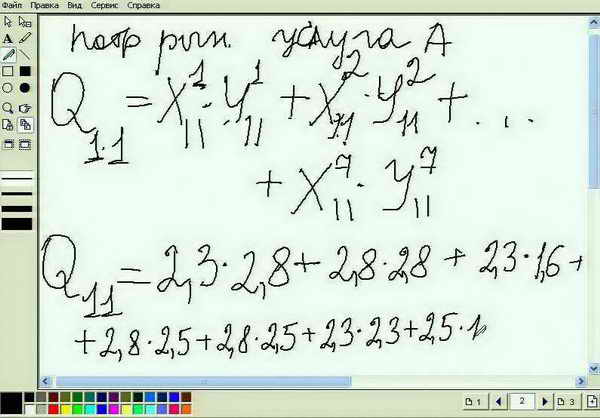 Файл Правка Вид Сервис Справка
потр рын. услуга А
Q₁.₁ = X¹₁₁ · Y¹₁₁ + X²₁₁ · Y²₁₁ + ...
+ X⁷₁₁ · Y⁷₁₁
Q₁₁ = 2,3 · 2,8 + 2,8 · 2,8 + 2,3 · 1,6 +
+ 2,8 · 2,5 + 2,8 · 2,5 + 2,3 · 2,3 + 2,5 · 1
1 2 3